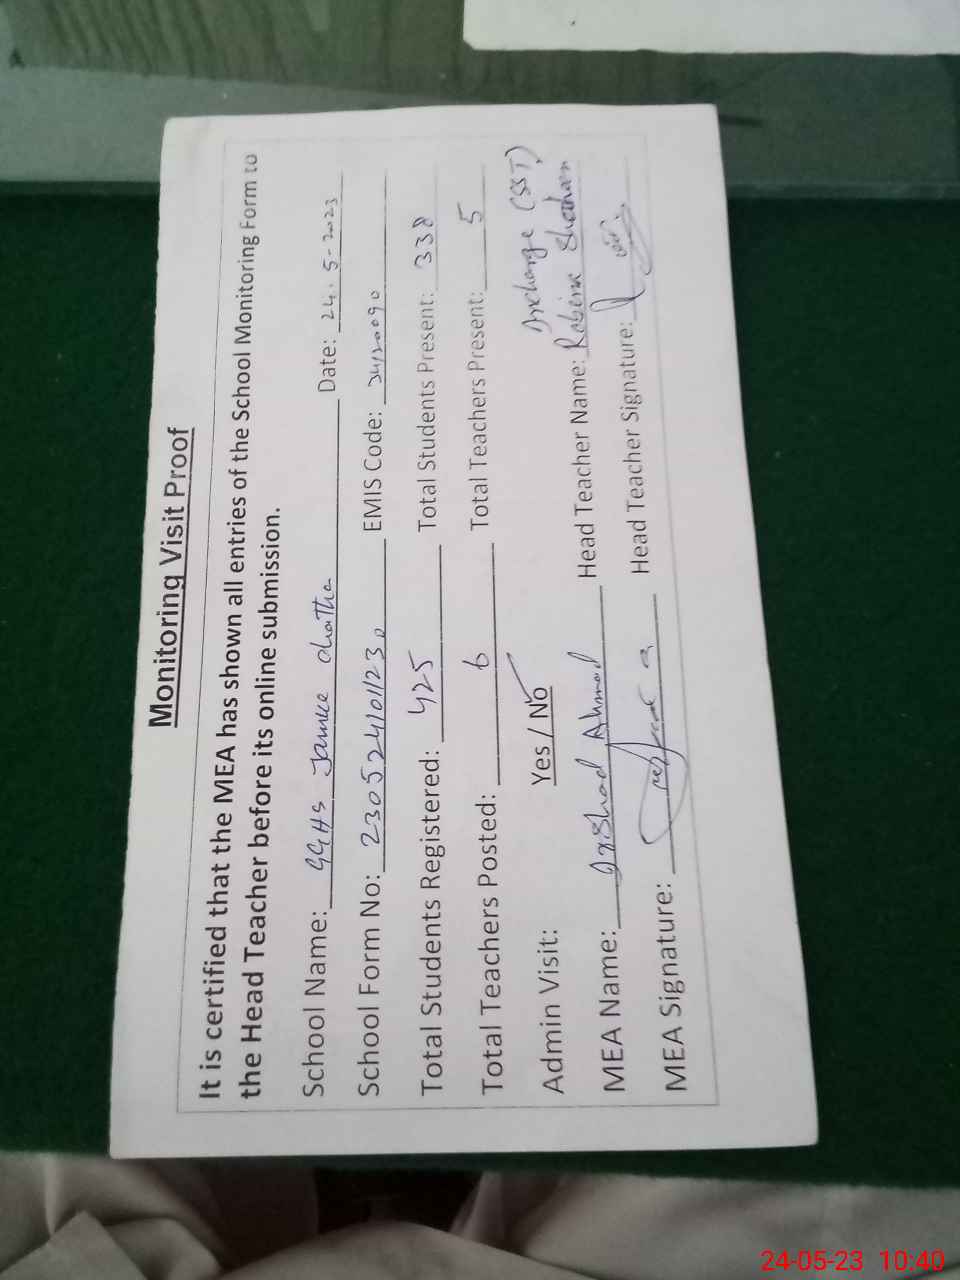 Monitoring Visit Proof
It is certified that the MEA has shown all entries of the School Monitoring Form to
the Head Teacher before its online submission.
School Name: GGHS Jamke Chatha Date: 24.5-2023
School Form No: 230524101123 0 EMIS Code: 34120090
Total Students Registered: 425 Total Students Present: 338
Total Teachers Posted: 6 Total Teachers Present: 5
Admin Visit: Yes / No Incharge (SST)
MEA Name: Irshad Ahmad Head Teacher Name: Robina Shaheen
MEA Signature: Head Teacher Signature:
24-05-23 10:40